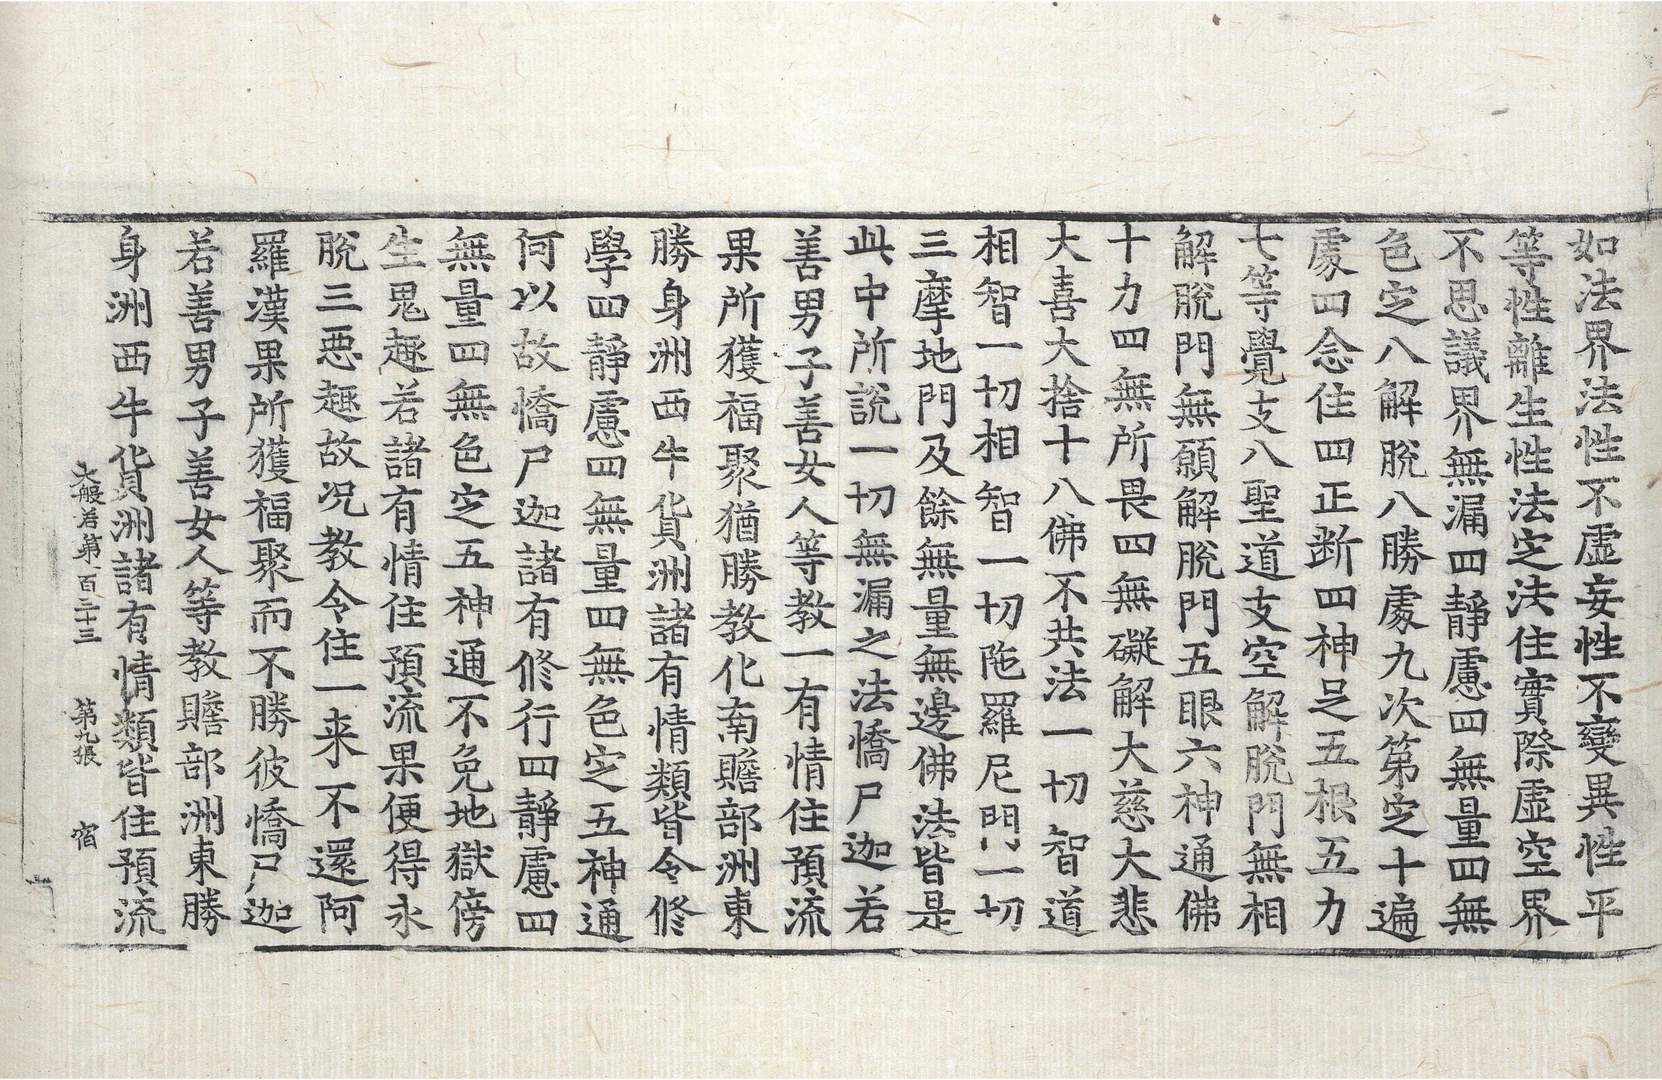 如法界法性不虛妄性不變異性平
等性離生性法定法住實際虛空界
不思議界無漏四靜慮四無量四無
色定八解脫八勝處九次第定十遍
處四念住四正斷四神足五根五力
七等覺支八聖道支空解脫門無相
解脫門無願解脫門五眼六神通佛
十力四無所畏四無礙解大慈大悲
大喜大捨十八佛不共法一切智道
相智一切相智一切陁羅尼門一切
三摩地門及餘無量無邊佛法皆是
此中所說一切無漏之法憍尸迦若
善男子善女人等教一有情住預流
果所獲福聚猶勝教化南贍部洲東
勝身洲西牛貨洲諸有情類皆令修
學四靜慮四無量四無色定五神通
何以故憍尸迦諸有修行四靜慮四
無量四無色定五神通不免地獄傍
生鬼趣若諸有情住預流果便得永
脫三惡趣故况教令住一来不還阿
羅漢果所獲福聚而不勝彼憍尸迦
若善男子善女人等教贍部洲東勝
身洲西牛貨洲諸有情類皆住預流
大般若第一百三十三 第九張 宿